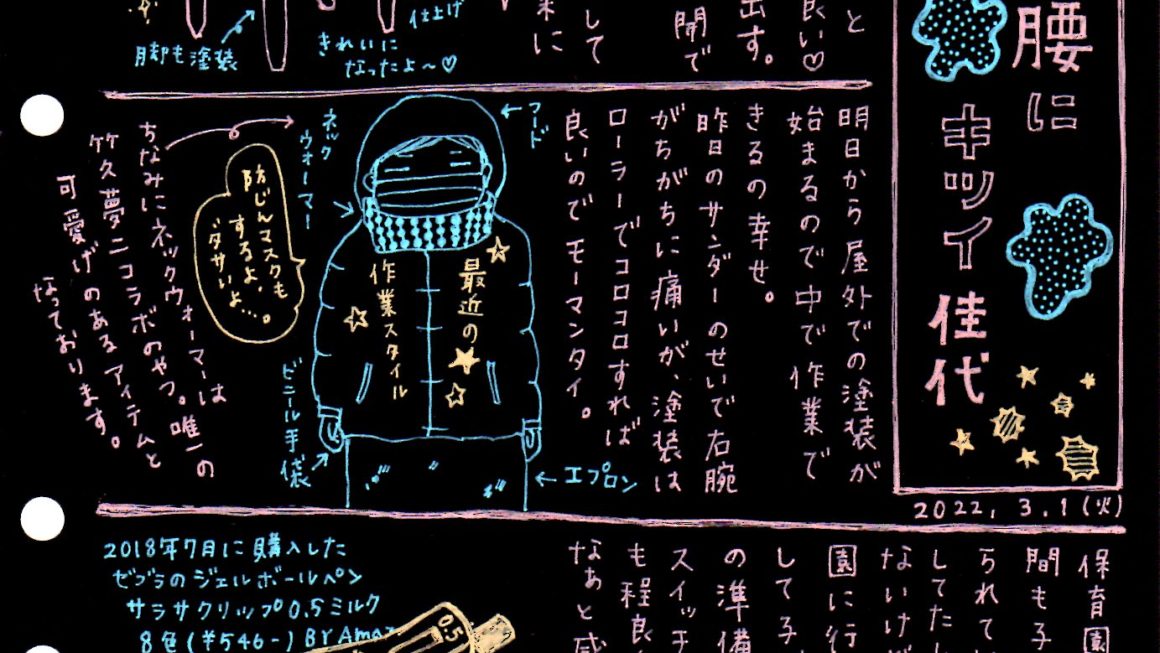 腰に
キツイ
佳代
2022, 3.1(火)
と
良い♡
出す。
開で
して
末に
仕上げ
きれいに
なったよ〜♡
脚も塗装
明日から屋外での塗装が
始まるので中で作業で
きるの幸せ。
昨日のサンダーのせいで右腕
がちがちに痛いが、塗装は
ローラーでコロコロすれば
良いのでモーマンタイ。
←フード
ネック
ウォーマー
最近の
作業スタイル
防じんマスクも
するよ、
ダサいよ…。
ビニール手袋
←エプロン
ちなみにネックウォーマーは
竹久夢二コラボのやつ。唯一の
可愛げのあるアイテムと
なっております。
保育園
間も子
られてい
してたし
ないけど
園に行
して子
の準備
スイッチ
も程良
なぁと感
2018年7月に購入した
ゼブラのジェルボールペン
サラサクリップ0.5ミルク
8色(¥546-) BY Ama
0.5